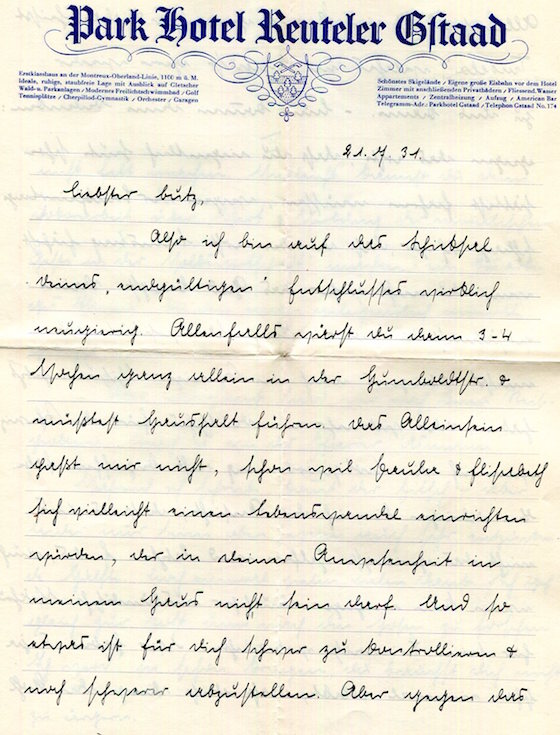 Park Hotel Reuteler Gstaad
Erstklasshaus an der Montreux-Oberland-Linie, 1100 m ü. M.
Ideale, ruhige, staubfreie Lage mit Ausblick auf Gletscher
Wald- u. Parkanlagen / Modernes Freilichtschwimmbad / Golf
Tennisplätze / Cherpillod-Gymnastik / Orchester / Garagen
Schönstes Skigelände / Eigene große Eisbahn vor dem Hotel
Zimmer mit anschließenden Privatbädern / Fliessend. Wasser
Appartements / Zentralheizung / Aufzug / American Bar
Telegramm-Adr.: Parkhotel Gstaad / Telephon Gstaad No. 174
21. 7. 31.
Liebster butz,
Also ich bin auf das Schicksal
deines „endgültigen" Entschlusses wirklich
neugierich. Allenfalls wärst du dann 3-4
Wochen ganz allein in der Humboldtstr. &
müßtest Haushalt führen. Das Alleinsein
paßt mir nicht, schon weil Paula & Elisabeth
sich vielleicht einen Lebenswandel einrichten
würden, der in deiner Anwesenheit in
meinem Haus nicht sein darf. Und so
etwas ist für dich schwer zu kontrollieren &
noch schwerer abzustellen. Aber gegen das